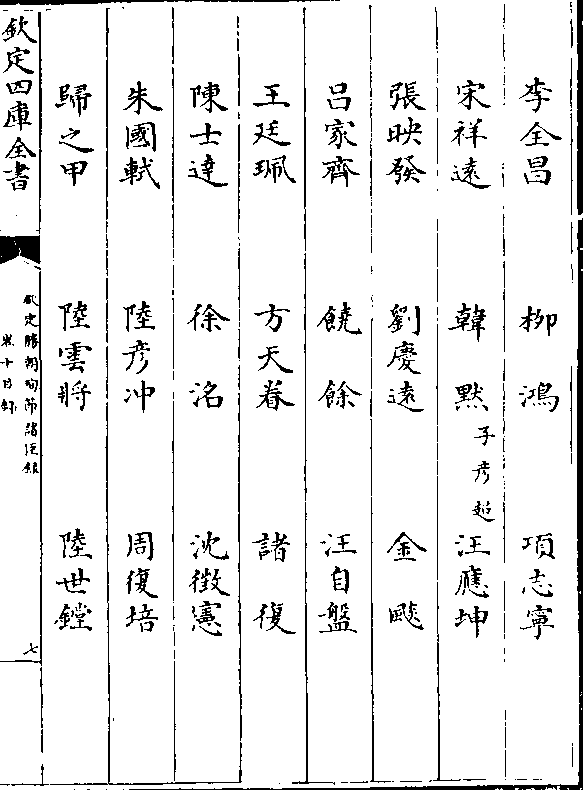 李全昌 柳鴻 項志寧
宋祥遠 韓默子彦超 汪應坤
張映發 劉慶遠 金颷
呂家齊 饒餘 汪自盤
王廷珮 方天眷 諸復
陳士達 徐洺 沈徴憲
朱國軾 陸彦冲 周復培
歸之甲 陸雲將 陸世鏜
欽定四庫全書
欽定勝朝殉節諸臣録
卷十目録
七